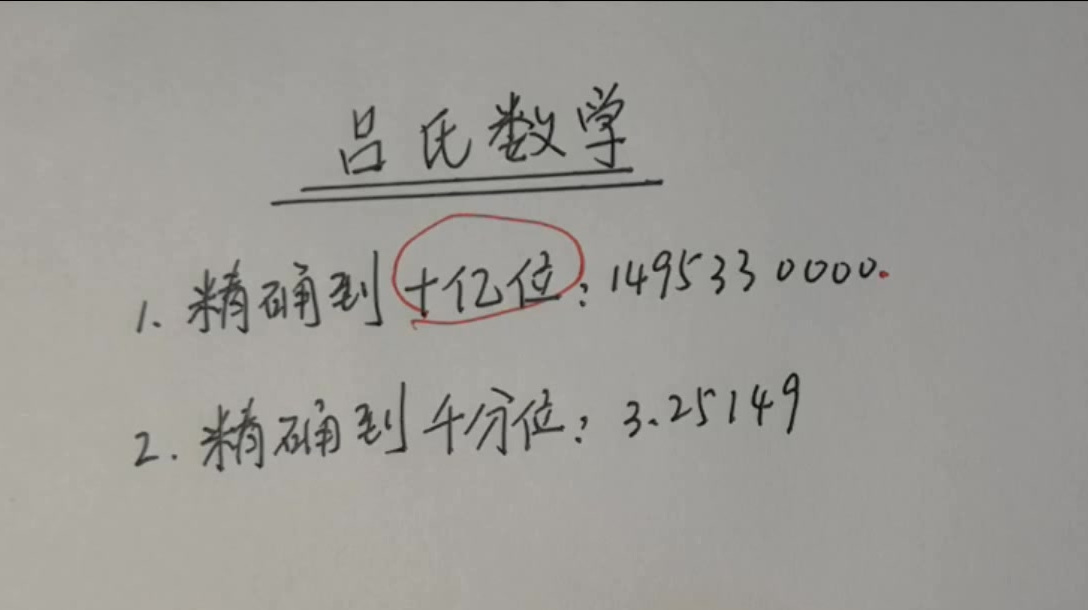 吕氏数学
1. 精确到十亿位：1495330000.
2. 精确到千分位：3.25149